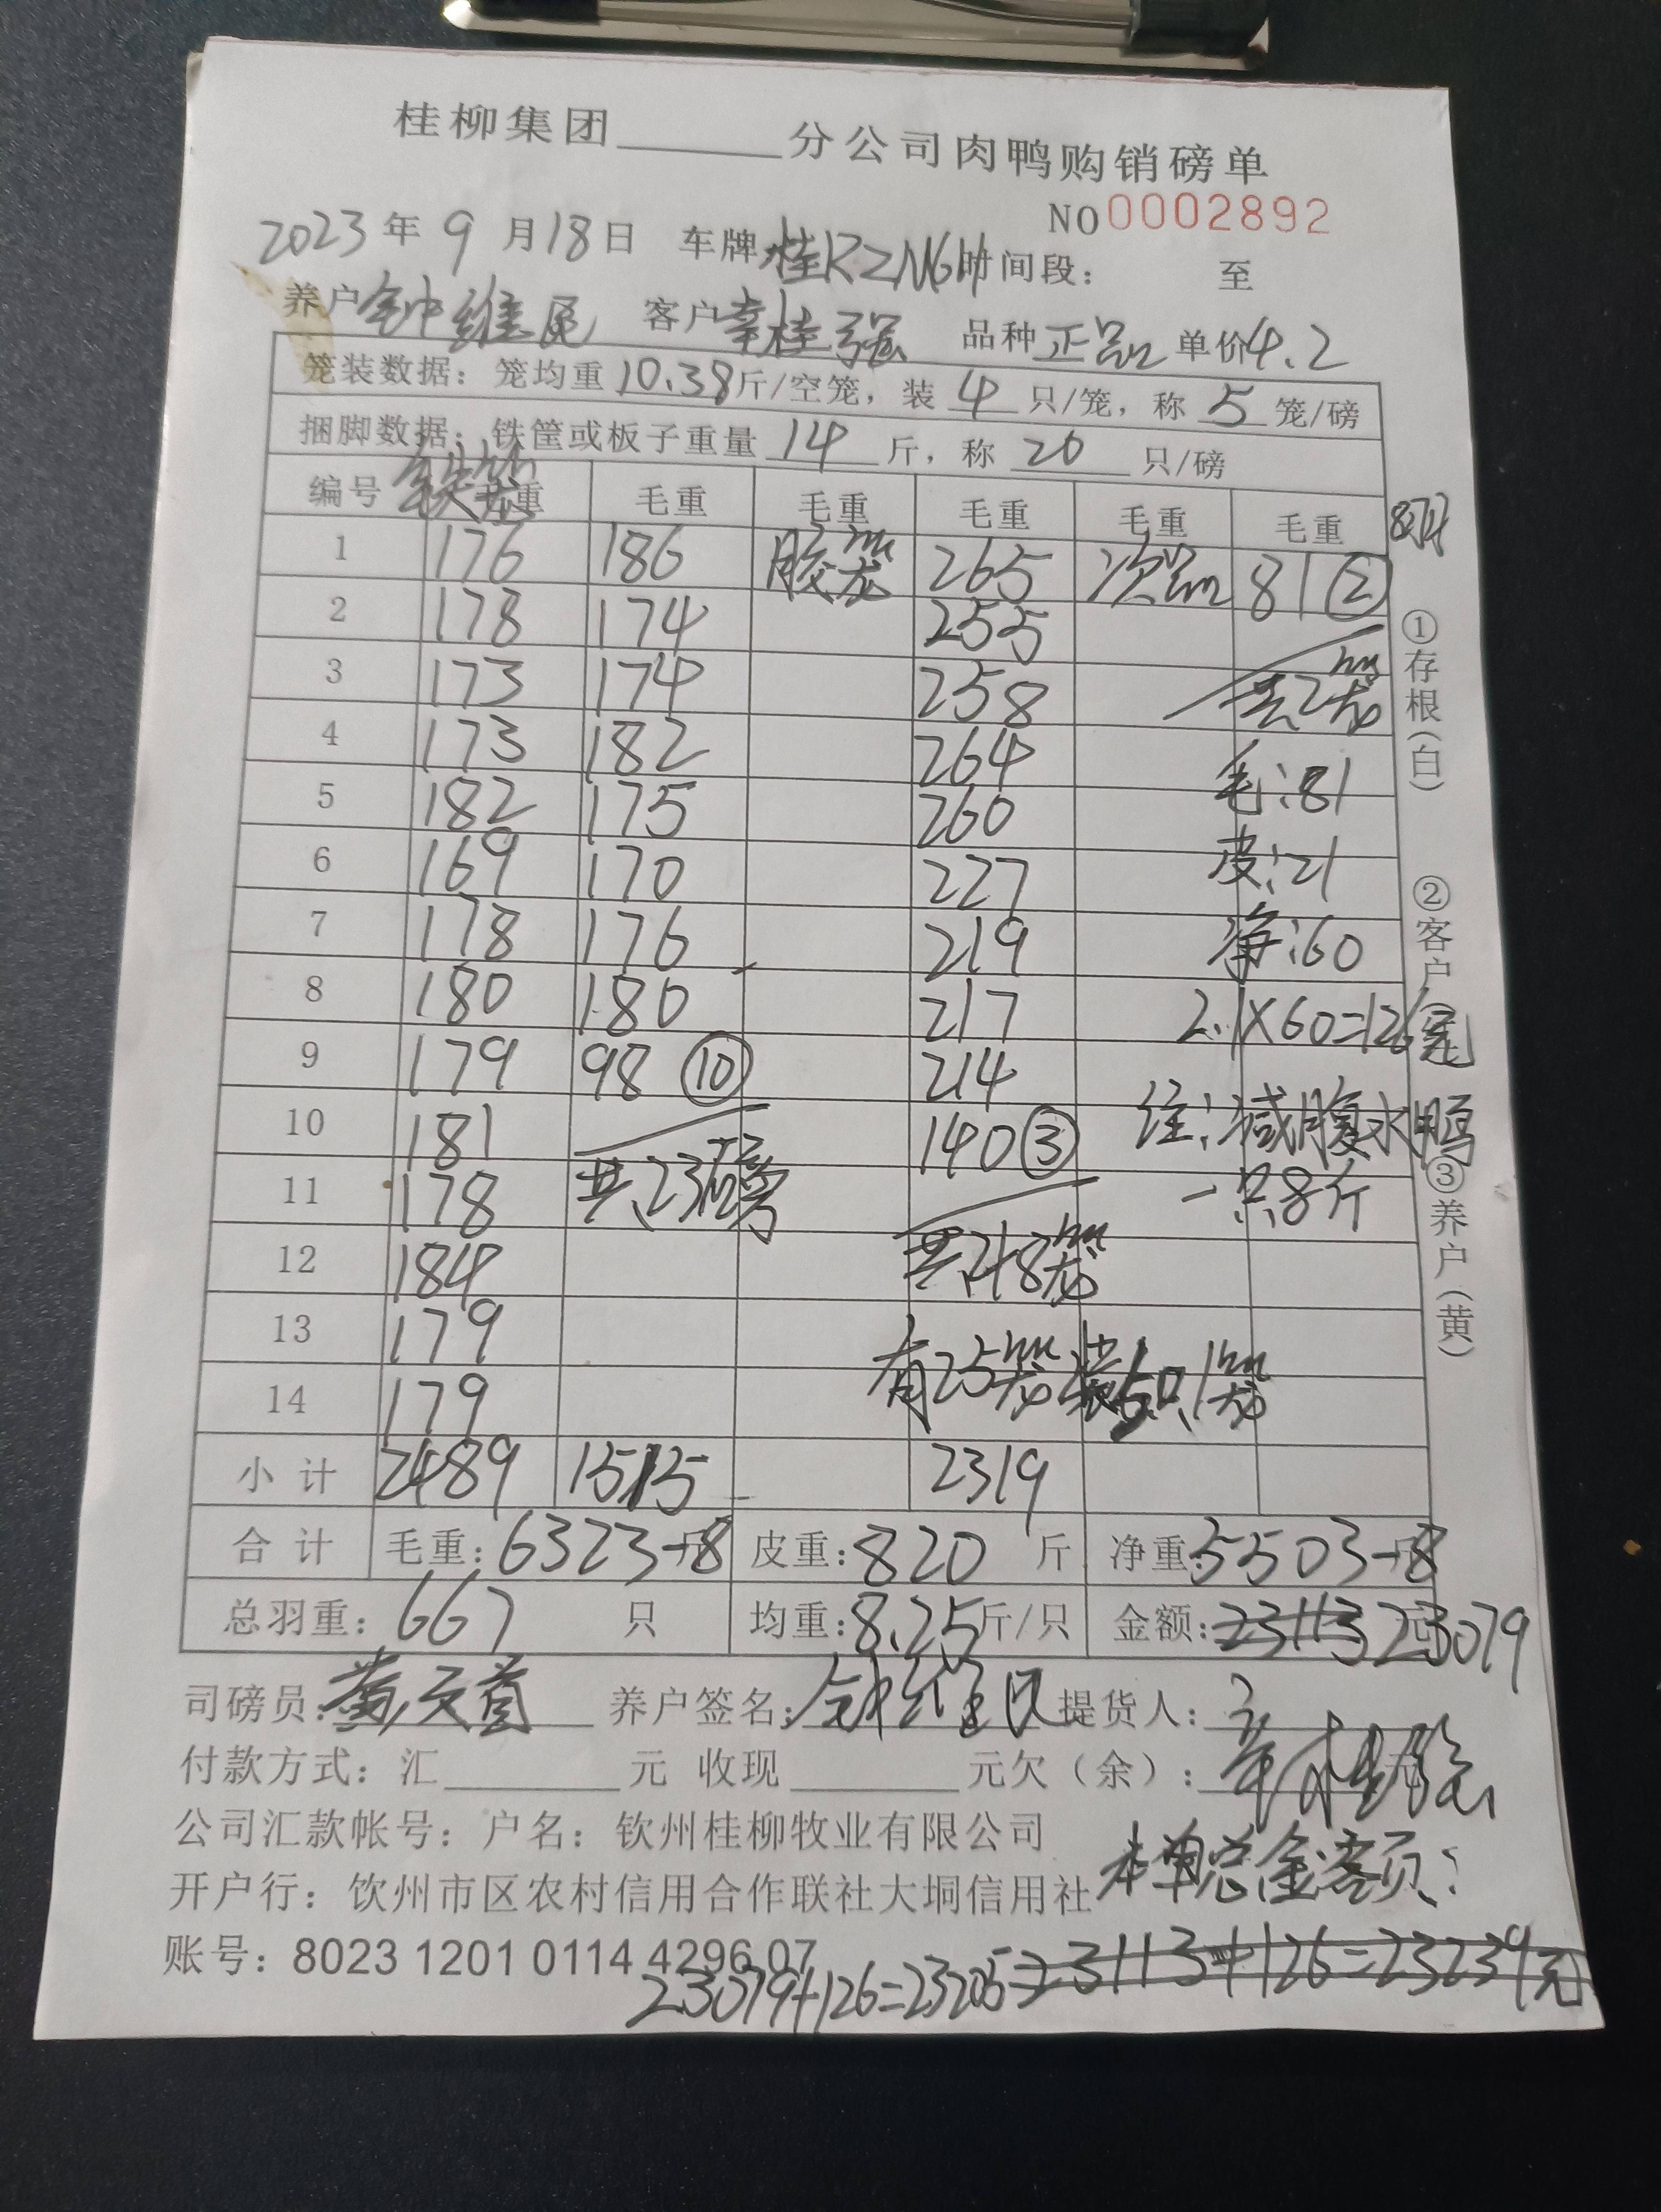 桂柳集团______分公司肉鸭购销磅单
NO 0002892
2023年9月18日 车牌桂KZM6 时间段： 至
养户钟维民 客户辛桂强 品种正品 单价4.2
笼装数据：笼均重10.38斤/空笼，装4只/笼，称5笼/磅
捆脚数据：铁筐或板子重量14斤，称20只/磅
编号 铁笼 毛重 毛重 毛重 毛重 毛重
1 176 186 胶笼 265 次品 81②
2 178 174 255
3 173 174 258 共2笼
4 173 182 264 毛：81
5 182 175 260 皮：21
6 169 170 227 净：60
7 178 176 219
8 180 180 217 2.1×60=126元
9 179 98⑩ 214
10 181 140③ 注：减腹水鸭
11 178 共23磅 一只8斤
12 184 共48笼
13 179
14 179 有25笼装5只1笼
小计 2489 1515 2319
合计 毛重：6323-8 皮重：820斤 净重：5503-8
总羽重：667只 均重：8.25斤/只 金额：23113 23079
司磅员：黄天首 养户签名：钟维民 提货人：
辛桂强
付款方式：汇______元 收现______元欠（余）：______元
公司汇款帐号：户名：钦州桂柳牧业有限公司
本单总金额：
开户行：钦州市区农村信用合作联社大垌信用社
账号：8023 1201 0114 4296 07
23079+126=23205 23113+126=23239元
①存根（白）
②客户
③养户（黄）